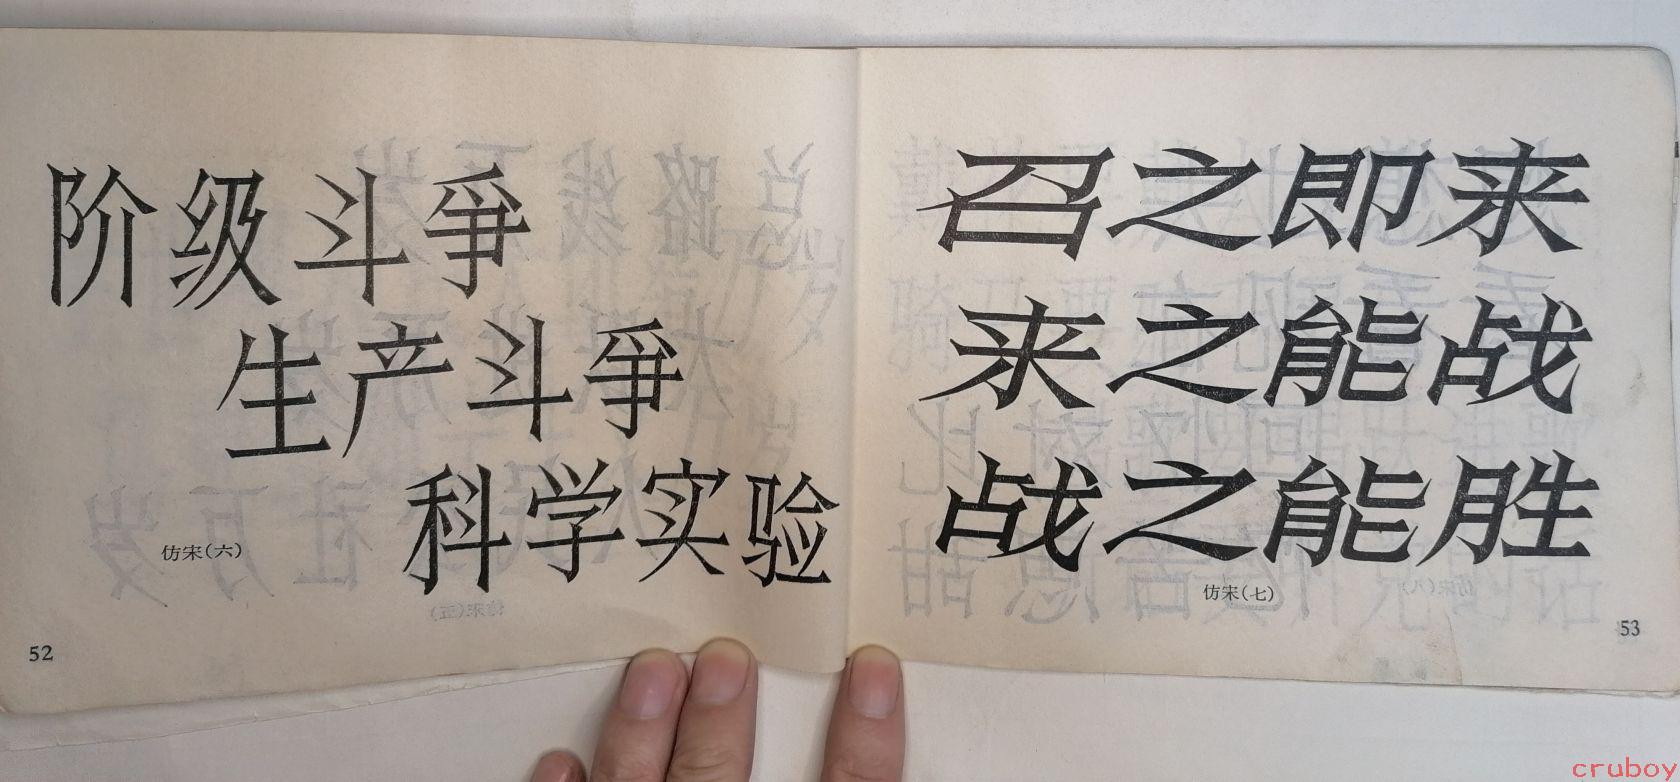 阶级斗爭
生产斗爭
科学实验
仿宋(六)
52
召之即来
来之能战
战之能胜
仿宋(七)
53
cruboy